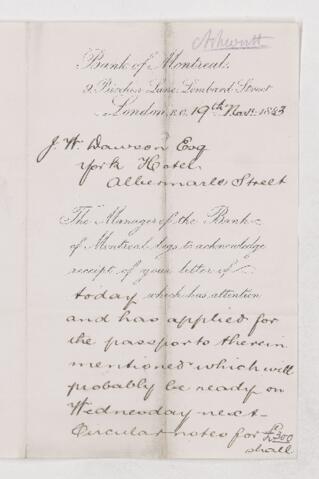 Ashworth
Bank of Montreal.
9 Birchin Lane, Lombard Street
London, E.C. 19th Novr. 1883
J. W. Dawson Esq
York Hotel
Albermarle Street
The Manager of the Bank
of Montreal begs to acknowledge
receipt of your letter of
today which has attention
and has applied for
the passports therein
mentioned which will
probably be ready on
Wednesday next
Circular notes for £300
shall